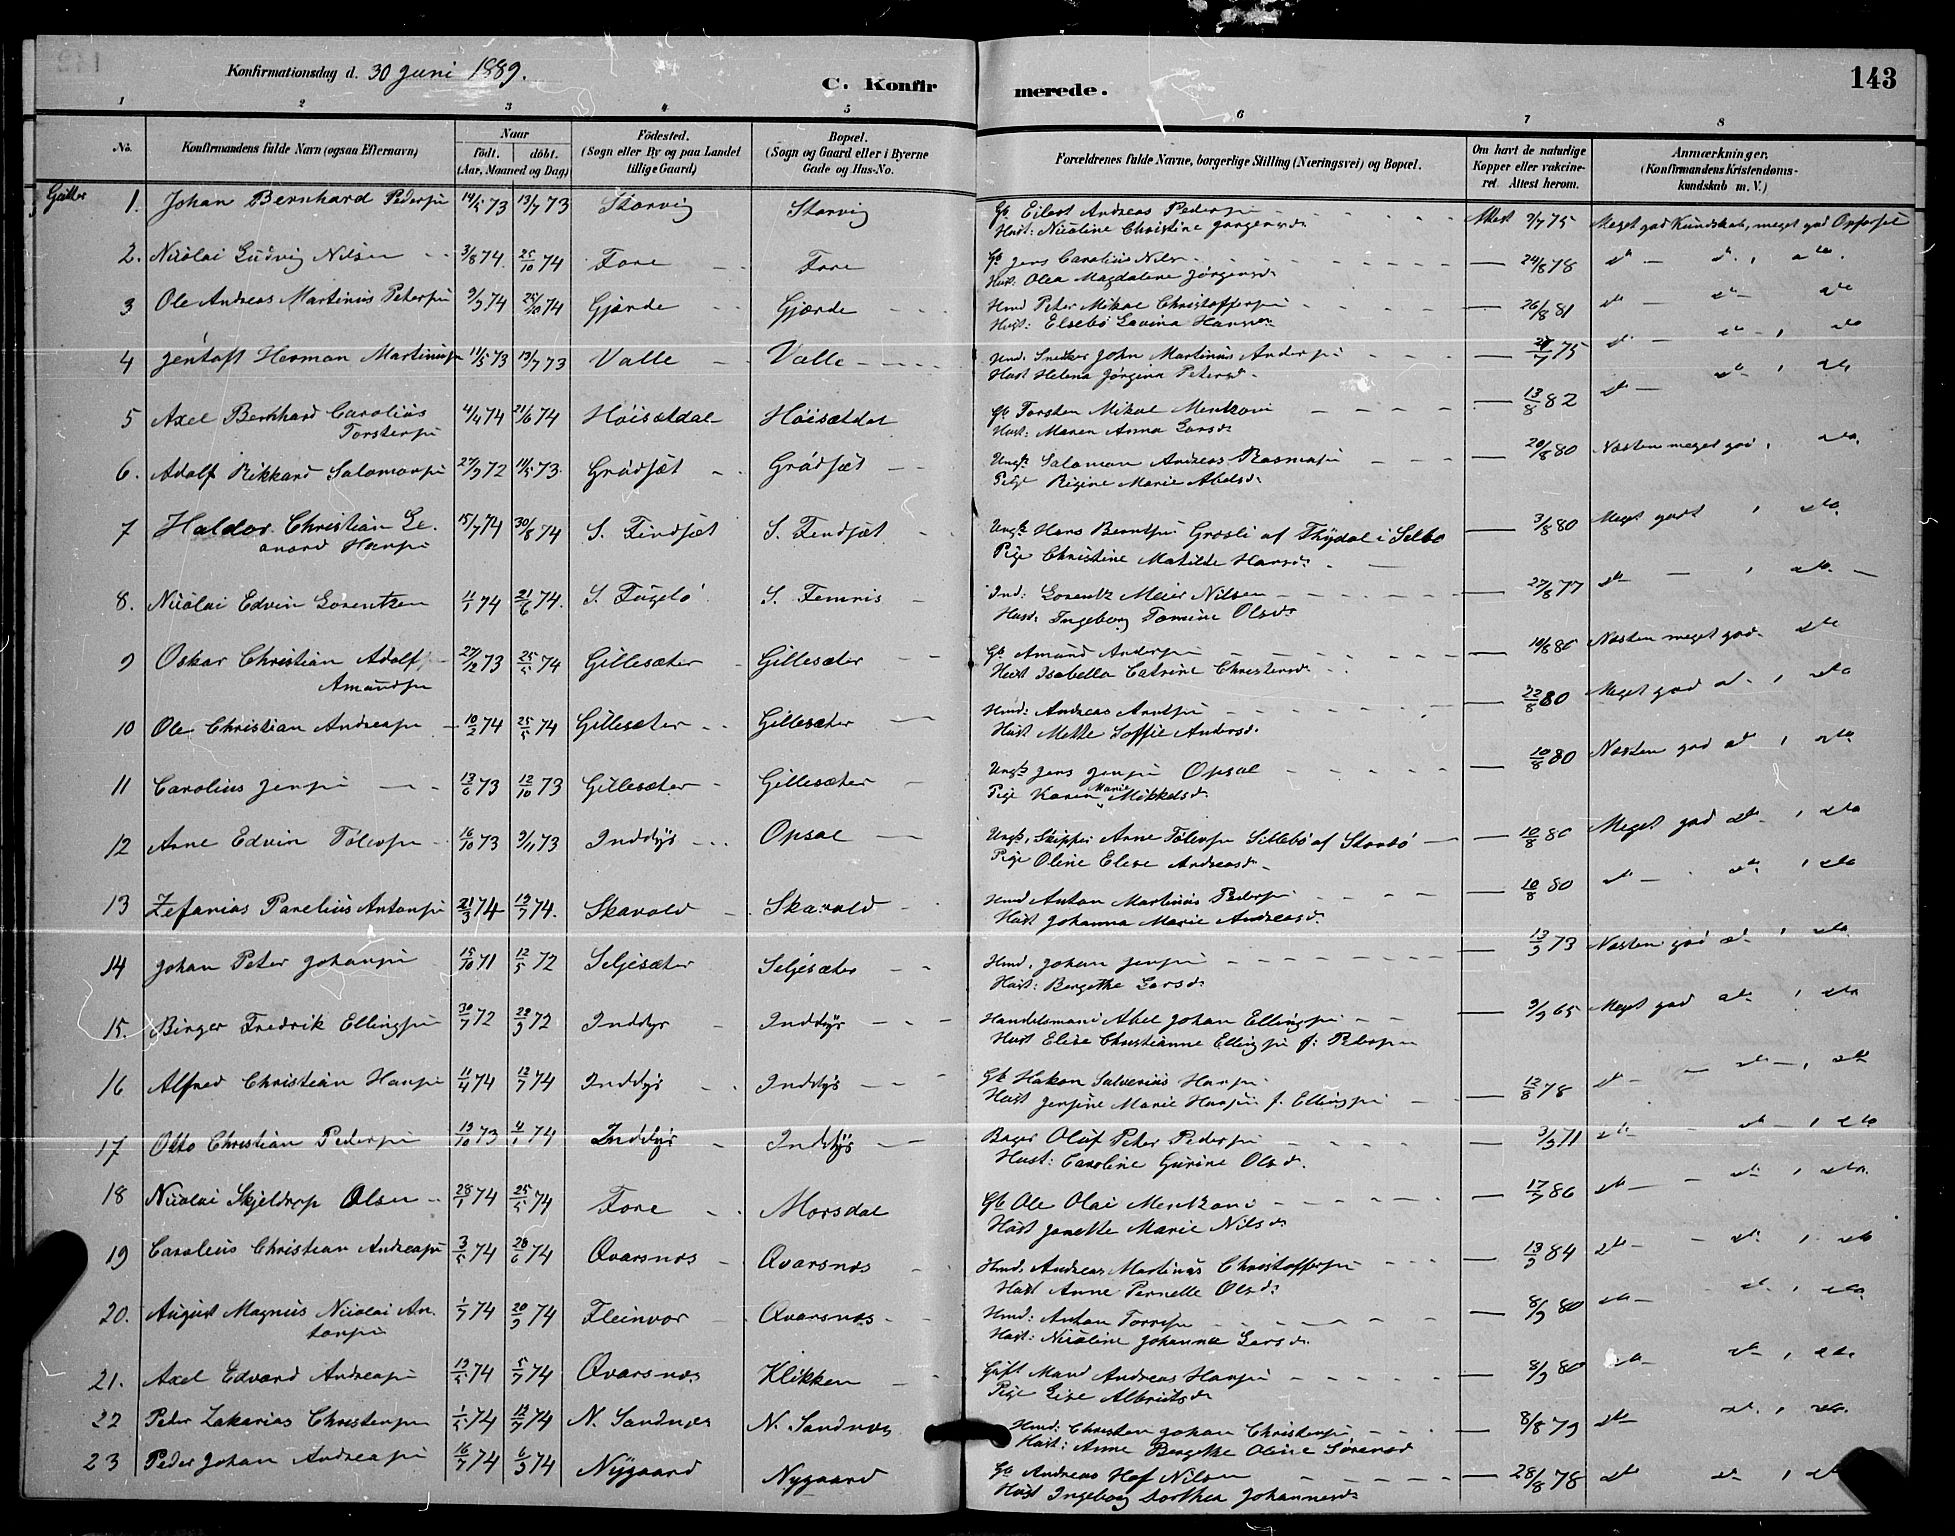 Konfirmationsdag d. 30 Juni 1889.
C. Konfirmerede.
143
1 2 3 4 5 6 7 8
No.
Konfirmandens fulde Navn (ogsaa Efternavn)
Naar
født. døbt.
(Aar, Maaned og Dag)
Fødested.
(Sogn eller By og paa Landet
tillige Gaard)
Bopæl.
(Sogn og Gaard eller i Byerne
Gade og Hus-No.
Forældrenes fulde Navne, borgerlige Stilling (Næringsvei) og Bopæl.
Om havt de naturlige
Kopper eller vakcine-
ret. Attest herom.
Anmærkninger.
(Konfirmandens Kristendoms-
kundskab m. V.)
Gutter
1. Johan Bernhard Pedersen 14/5 73 13/7 73 Storvig Storvig Gb. Eilert Andreas Pedersen Attest 9/7 75 Meget god Kundskab, meget god Opførsel
Hust: Nicoline Christine Jørgensd.
2. Nicolai Ludvig Nilsen 3/8 74 25/10 74 Fore Fore Gb Jens Carolius Nils. 24/8 78 do do, do
Hust. Olea Magdalene Jørgensd
3 Ole Andreas Martinus Petersen 9/9 74 25/10 74 Gjærde Gjærde Hmd Peter Mikal Christoffersen 26/8 81 do do do
Hust: Elsebø Lavina Hans
4 Jentoft Herman Martinus 11/5 73 13/7 73 Valle Valle Hmd. Snedker John Martinus Andersen 75 do do, do
Hust Helena Jørgine Petersd.
5 Axel Bernhard Carolius 4/4 74 21/6 74 Høisætdal Høisætdal Gb Torsten Mikal Mentzoni 13/8 82 do do, do
Torstensen Hust: Maren Anna Larsd
6. Adolf Rikkard Salomonsen 27/9 72 11/5 73 Grådsæt Grådsæt Ungk. Salomon Andreas Rasmusen 20/8 80 Næsten meget god, do
Pige Regine Marie Abelsd.
7 Haldor Christian Le- 15/7 74 30/8 74 S. Findsæt S. Findsæt Ungk Hans Berntsen Græsli af Thydal i Selbo 3/8 80 Meget godt, do
onard Hansen Pige Christine Matilde Hansd.
8. Nicolai Edvin Lorentzen 1/1 74 21/6 74. S. Fugelø S. Femris Ind: Lorentz Meier Nilsen 27/8 77 do, do
Hust. Ingeborg Tomine Olsd.
9 Oskar Christian Adolf 27/12 73 25/5 74 Gillesæter Gillesæter Gb Amund Andersen 10/8 80 Næsten meget god do
Amundsen Hust Isabella Catrine Christensd
10 Ole Christian Andreasen 10/2 74 25/5 74 Gillesæter Gillesæter Hmd: Andreas Arntsen 22/8 80 Meget god do, do
Hust Mette Soffie Andersd.
11 Carolius Jensen 13/6 73 12/10 73 Gillesæter Gillesæter Ungk Jens Jensen Opsal 10/8 80 Næsten god do, do
Pige Karen Marie Mikkelsd.
12 Arne Edvin Tolevsen 16/10 73 9/11 73 Inddyr Opsal Ungk. Skipper Arne Tolevsen Sillebø af 10/8 80 Meget god do, do
Pige Oline Elise Andreasd.
13 Zefanias Parelius Antonsen 21/3 74 19/7 74. Skavold Skavold Hmd Anton Martinus Pedersen 10/8 80 do do, do
Hust Johanna Marie Andreasd.
14 Johan Peter Johansen 15/10 71 12/5 72 Seljesæter Seljesæter Hmd. Johan Jensen 13/9 73 Næsten god do, do
Hust: Bergethe Larsd
15. Birger Fredrik Ellingsen 30/7 72 22/9 72 Inddyr Inddyr Handelsmand Abel Johan Ellingsen 9/9 65 Meget god do, do
Hust Elise Christianne Ellingsen f: Pedersen
16 Alfred Christian Hansen 11/4 74 12/7 74 Inddyr Inddyr Gb Hakon Sulverius Hansen 12/8 78 do do, do
Hust Jensine Marie Hansen f. Ellingsen
17 Otto Christian Pedersen 19/10 73 4/1 74 Inddyr Inddyr Bager Oluf Peter Pedersen 3/9 71 do do, do
Hust: Caroline Gurine Olsd.
18 Nicolai Skjeldrop Olsen 28/1 74 25/5 74 Fore Morsdal Gb Ole Olai Mentzoni 17/9 86 do do, do
Hust Janette Marie Nilsd
19 Carolius Christian Andreasen 3/5 74 28/6 74 Qvarsnæs Qvarsnæs Hmd. Andreas Martinus Christoffersen 13/9 84 do do, do
Hust Anne Pernelle Olsd.
20. August Magnus Nicolai An- 1/7 74 20/9 74 Fleinvær Qvarsnæs Hmd: Anton 8/9 80 do do, do
tonsen Hust: Nicoline Johanna Larsd
21. Axel Edvard Andreasen 19/5 74 5/7 74 Qvarsnæs Klikken Gift Mand Andreas Hansen 8/9 80 do do, do
Pige Lise Albrigtsd
22 Peder Zakarias Christensen 1/5 74 12/7 74 N. Sandnæs N. Sandnæs Hmd: Christen Johan Christensen 8/8 79 do do, do
Hust: Anne Bergethe Oline Sørensd
23 Peder Johan Andreasen 16/7 74 6/9 74 Nygaard Nygaard Gb Andreas Hof Nilsen 28/8 78 do do, do
Hust Ingeborg Dorthea Johannesd